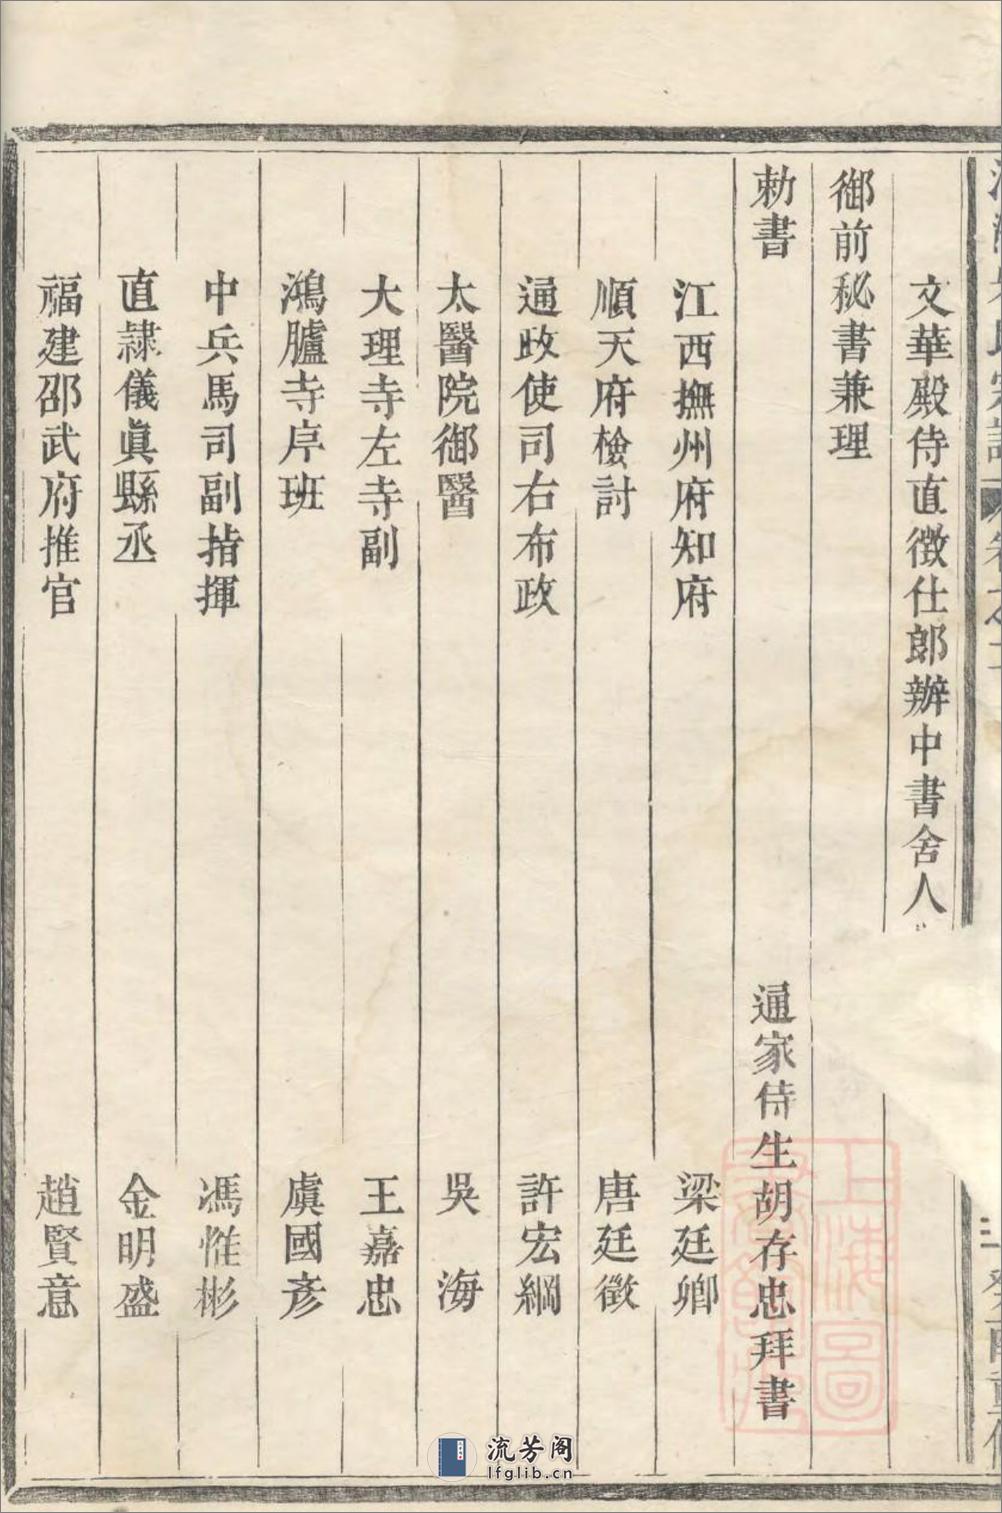 文華殿侍直徵仕郎辦中書舍人
御前秘書兼理
勅書
通家侍生胡存忠拜書
江西撫州府知府 梁廷卿
順天府檢討 唐廷徵
通政使司右布政 許宏綱
太醫院御醫 吳海
大理寺左寺副 王嘉忠
鴻臚寺序班 虞國彥
中兵馬司副指揮 馮惟彬
直隸儀眞縣丞 金明盛
福建邵武府推官 趙賢意
上海圖
流芳阁
lfglib.cn